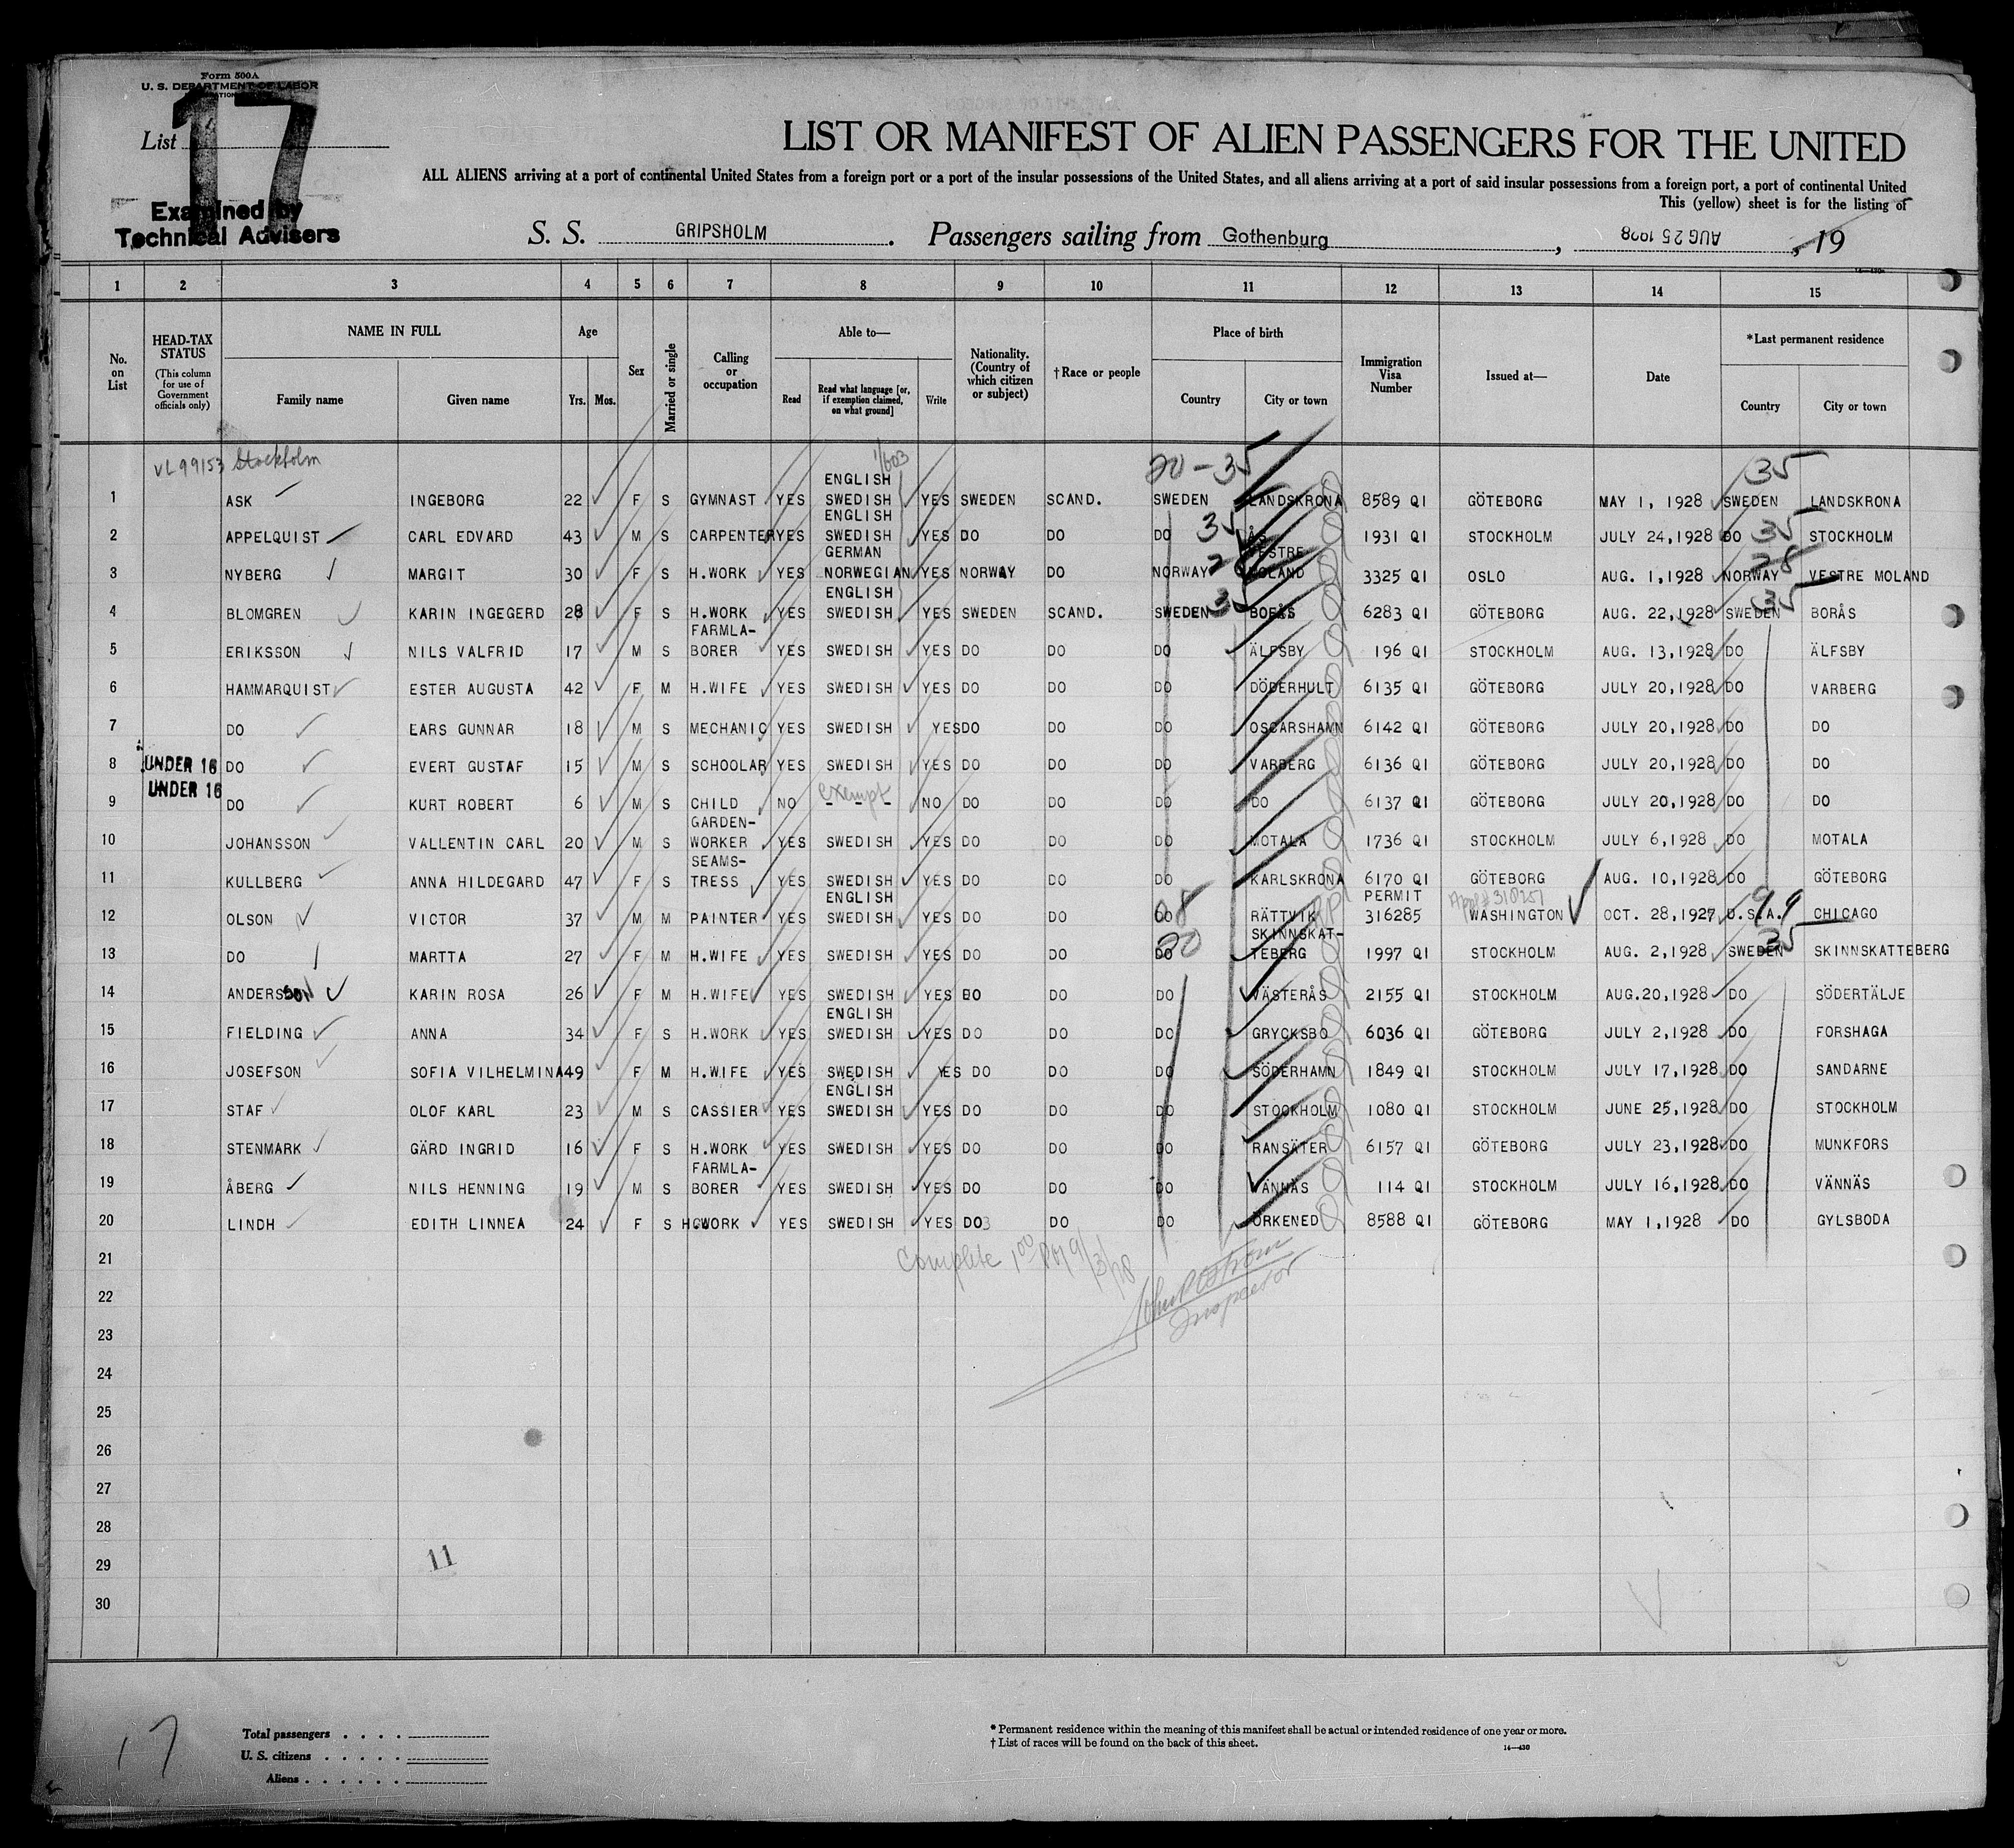 Form 500A
U. S. DEPARTMENT OF LABOR
List 17
LIST OR MANIFEST OF ALIEN PASSENGERS FOR THE UNITED
ALL ALIENS arriving at a port of continental United States from a foreign port or a port of the insular possessions of the United States, and all aliens arriving at a port of said insular possessions from a foreign port, a port of continental United
This (yellow) sheet is for the listing of
Examined by
Technical Advisers
S. S. GRIPSHOLM . Passengers sailing from Gothenburg , AUG 25 1928 , 19
1 2 3 4 5 6 7 8 9 10 11 12 13 14 15
No. on List
HEAD-TAX STATUS
(This column for use of Government officials only)
NAME IN FULL
Family name Given name
Age
Yrs. Mos.
Sex
Married or single
Calling or occupation
Able to—
Read
Read what language [or, if exemption claimed, on what ground]
Write
Nationality. (Country of which citizen or subject)
†Race or people
Place of birth
Country City or town
Immigration Visa Number
Issued at—
Date
*Last permanent residence
Country City or town
VL99153 Stockholm 1/603 20-35 35
ENGLISH
1 ASK INGEBORG 22 F S GYMNAST YES SWEDISH YES SWEDEN SCAND. SWEDEN LANDSKRONA 8589 QI GÖTEBORG MAY 1, 1928 SWEDEN LANDSKRONA
ENGLISH
2 APPELQUIST CARL EDVARD 43 M S CARPENTER YES SWEDISH YES DO DO DO 35 ÅS 1931 QI STOCKHOLM JULY 24,1928 DO 35 STOCKHOLM
GERMAN VESTRE
3 NYBERG MARGIT 30 F S H.WORK YES NORWEGIAN YES NORWAY DO NORWAY MOLAND 3325 QI OSLO AUG. 1,1928 NORWAY 28 VESTRE MOLAND
ENGLISH
4 BLOMGREN KARIN INGEGERD 28 F S H.WORK YES SWEDISH YES SWEDEN SCAND. SWEDEN 35 BORÅS 6283 QI GÖTEBORG AUG. 22,1928 SWEDEN 35 BORÅS
FARMLA-
5 ERIKSSON NILS VALFRID 17 M S BORER YES SWEDISH YES DO DO DO ÄLFSBY 196 QI STOCKHOLM AUG. 13,1928 DO ÄLFSBY
6 HAMMARQUIST ESTER AUGUSTA 42 F M H.WIFE YES SWEDISH YES DO DO DO DÖDERHULT 6135 QI GÖTEBORG JULY 20,1928 DO VARBERG
7 DO LARS GUNNAR 18 M S MECHANIC YES SWEDISH YES DO DO DO OSCARSHAMN 6142 QI GÖTEBORG JULY 20,1928 DO DO
8 UNDER 16 DO EVERT GUSTAF 15 M S SCHOOLAR YES SWEDISH YES DO DO DO VARBERG 6136 QI GÖTEBORG JULY 20,1928 DO DO
9 UNDER 16 DO KURT ROBERT 6 M S CHILD NO exempt - - - NO DO DO DO DO 6137 QI GÖTEBORG JULY 20,1928 DO DO
GARDEN-
10 JOHANSSON VALLENTIN CARL 20 M S WORKER YES SWEDISH YES DO DO DO MOTALA 1736 QI STOCKHOLM JULY 6,1928 DO MOTALA
SEAMS-
11 KULLBERG ANNA HILDEGARD 47 F S TRESS YES SWEDISH YES DO DO DO KARLSKRONA 6170 QI GÖTEBORG AUG. 10,1928 DO GÖTEBORG
ENGLISH PERMIT
12 OLSON VICTOR 37 M M PAINTER YES SWEDISH YES DO DO DO 08 RÄTTVIK 316285 WASHINGTON OCT. 28,1927 U.S.A. 99 CHICAGO
SKINNSKAT-
13 DO MARTTA 27 F M H.WIFE YES SWEDISH YES DO DO DO 20 TEBERG 1997 QI STOCKHOLM AUG. 2,1928 SWEDEN 35 SKINNSKATTEBERG
14 ANDERSSON KARIN ROSA 26 F M H.WIFE YES SWEDISH YES DO DO DO VÄSTERÅS 2155 QI STOCKHOLM AUG.20,1928 DO SÖDERTÄLJE
ENGLISH
15 FIELDING ANNA 34 F S H.WORK YES SWEDISH YES DO DO DO GRYCKSBO 6036 QI GÖTEBORG JULY 2,1928 DO FORSHAGA
16 JOSEFSON SOFIA VILHELMINA 49 F M H.WIFE YES SWEDISH YES DO DO DO SÖDERHAMN 1849 QI STOCKHOLM JULY 17,1928 DO SANDARNE
ENGLISH
17 STAF OLOF KARL 23 M S CASSIER YES SWEDISH YES DO DO DO STOCKHOLM 1080 QI STOCKHOLM JUNE 25,1928 DO STOCKHOLM
18 STENMARK GÄRD INGRID 16 F S H.WORK YES SWEDISH YES DO DO DO RANSÄTER 6157 QI GÖTEBORG JULY 23,1928 DO MUNKFORS
FARMLA-
19 ÅBERG NILS HENNING 19 M S BORER YES SWEDISH YES DO DO DO VÄNNÄS 114 QI STOCKHOLM JULY 16,1928 DO VÄNNÄS
20 LINDH EDITH LINNEA 24 F S H.WORK YES SWEDISH YES DO DO DO ÖRKENED 8588 QI GÖTEBORG MAY 1,1928 DO GYLSBODA
21 Complete 1 00 PM 9/3/28
22 Inspector
23
24
25
26
27
28
29 11
30
17
Total passengers
U. S. citizens
Aliens
* Permanent residence within the meaning of this manifest shall be actual or intended residence of one year or more.
† List of races will be found on the back of this sheet.
14—430